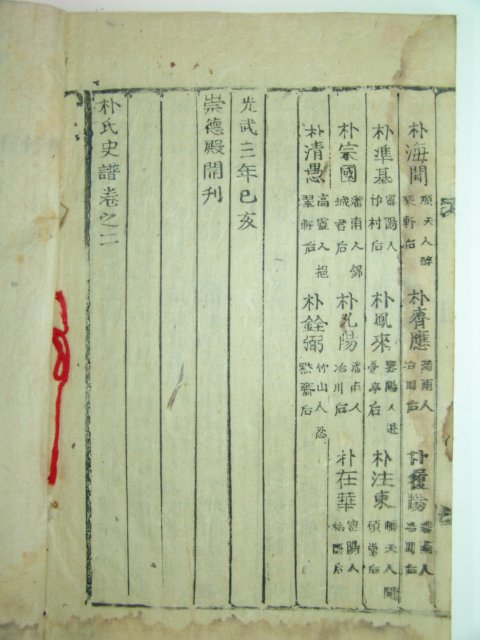 朴海閒 順天人醉軒后 朴齊應 潘南人冶川后 朴 陽 潘南人冶川后
朴準基 密陽人 村后 朴鳳來 密陽人退憂亭后 朴注東 順天人 碩堂后
朴宗國 潘南人錦城君后 朴九陽 潘南人冶川后 朴在華 密陽人松隱后
朴清愚 高靈人挹翠軒后 朴銓弼 竹山人忍默齋后
光武三年己亥
崇德殿開刊
朴氏史譜卷之二